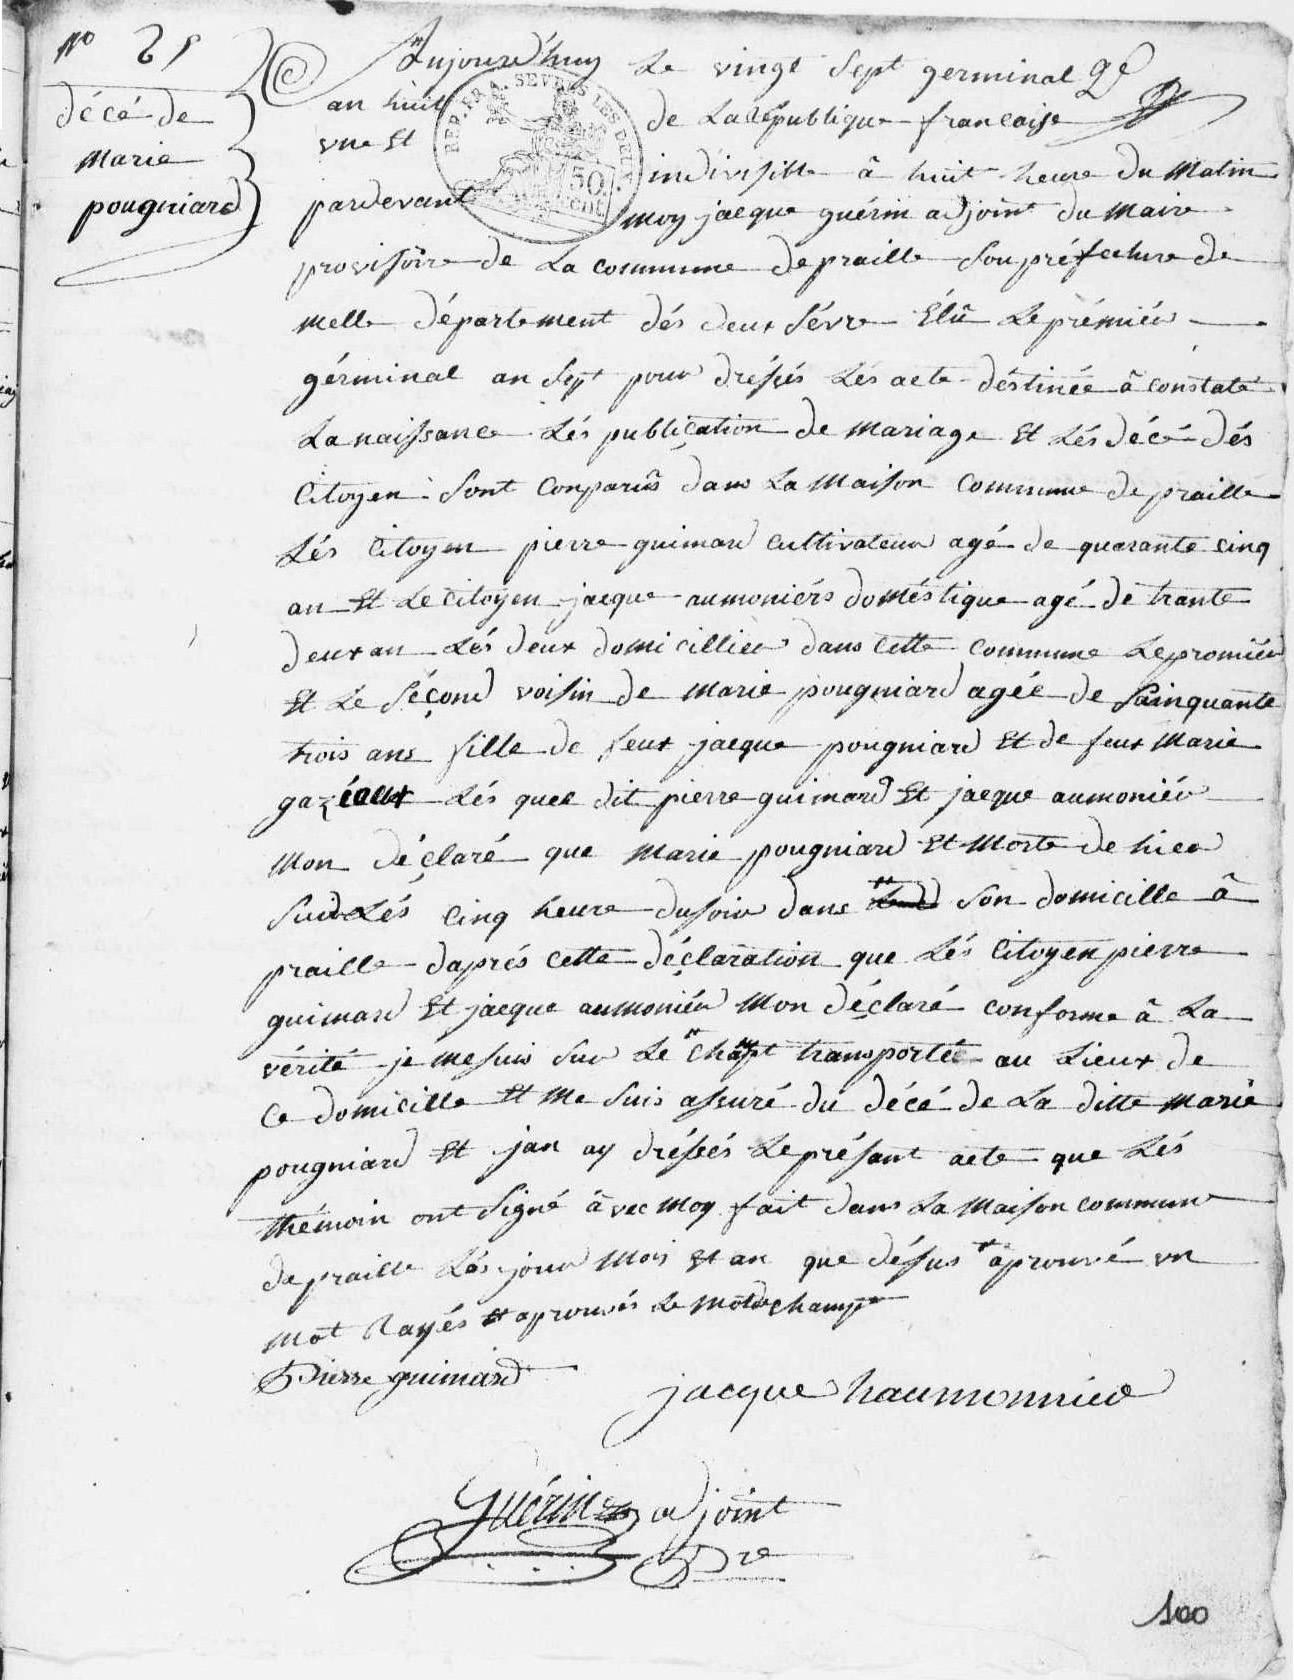 No 25
décé de
marie
pougniard
Aujourd'huy Le vingt sept germinal
an huit de La République francaise
vne Et indivisible â huit heure du Matin
pardevant moy jacque guérin adjoint du maire
REP. FRA. SEVRES LES DEUX.
50
cent
provisoire de La commune de praille Sou préfecture de
melle département dés deux Sévre Élû Le prémiér
gérminal an Sept pour dréssés Lés acte déstinée â constaté
La naissance Lés publication de mariage Et Lés décé dés
Citoyen Sont Conparûs dans La Maison Commune de praille
Lés Citoyen pierre guimard cultivateur agé de quarante cinq
an Et Le Citoyen jacque aumoniérs doméstique agé de trante
deux an Lés deux domicilliér dans cette commune Le promiér
Et Le Séçond voisin de marie pougniard agée de Sainquante
trois ans fille de feux jacque pougniard Et de feux Marie
Lés quel dit pierre guimard Et jacque aumoniér
Mon déçlaré que Marie pougniard Et Morte de hier
Sur Lés cinq heure du soir dans Son domicille â
praille daprés cette déçlaration que Lés Citoyen pierre
guimard Et jacque aumoniér Mon déçlaré conforme â La
vérité je me suis Sur Le champt transportée au Lieux de
Ce domicille Et Me Suis assuré du décé de La ditte Marie
pougniard Et jan ay dréssés Le présant acte que Lés
thémoin ont Signé âvec Moy fait dans La Maison commune
de praille Lés jour Mois Et an que désus aprouvé vn
Mot Rayés Et aprouvés Le mot de champt
Pierre guimard
jacque haumonnier
Guérin adjoint
Pre
100